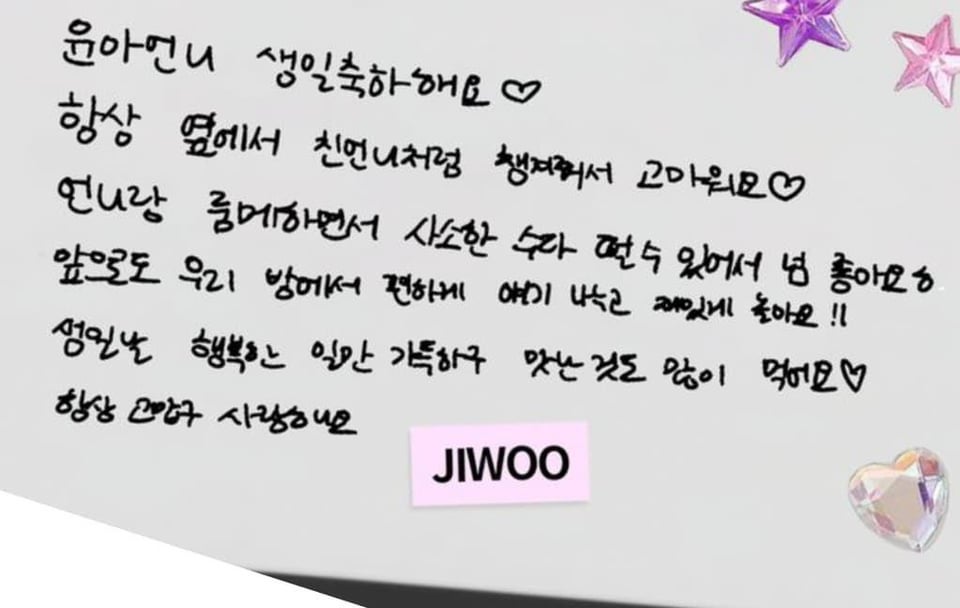 윤아언니 생일축하해요♡
항상 옆에서 친언니처럼 챙겨줘서 고마워요♡
언니랑 룸메하면서 사소한 수다 떨 수 있어서 넘 좋아요ㅎ
앞으로도 우리 방에서 편하게 얘기 나누고 재밌게 놀아요!!
생일날 행복한 일만 가득하구 맛난것도 많이 먹어요♡
항상 고맙구 사랑해요
JIWOO